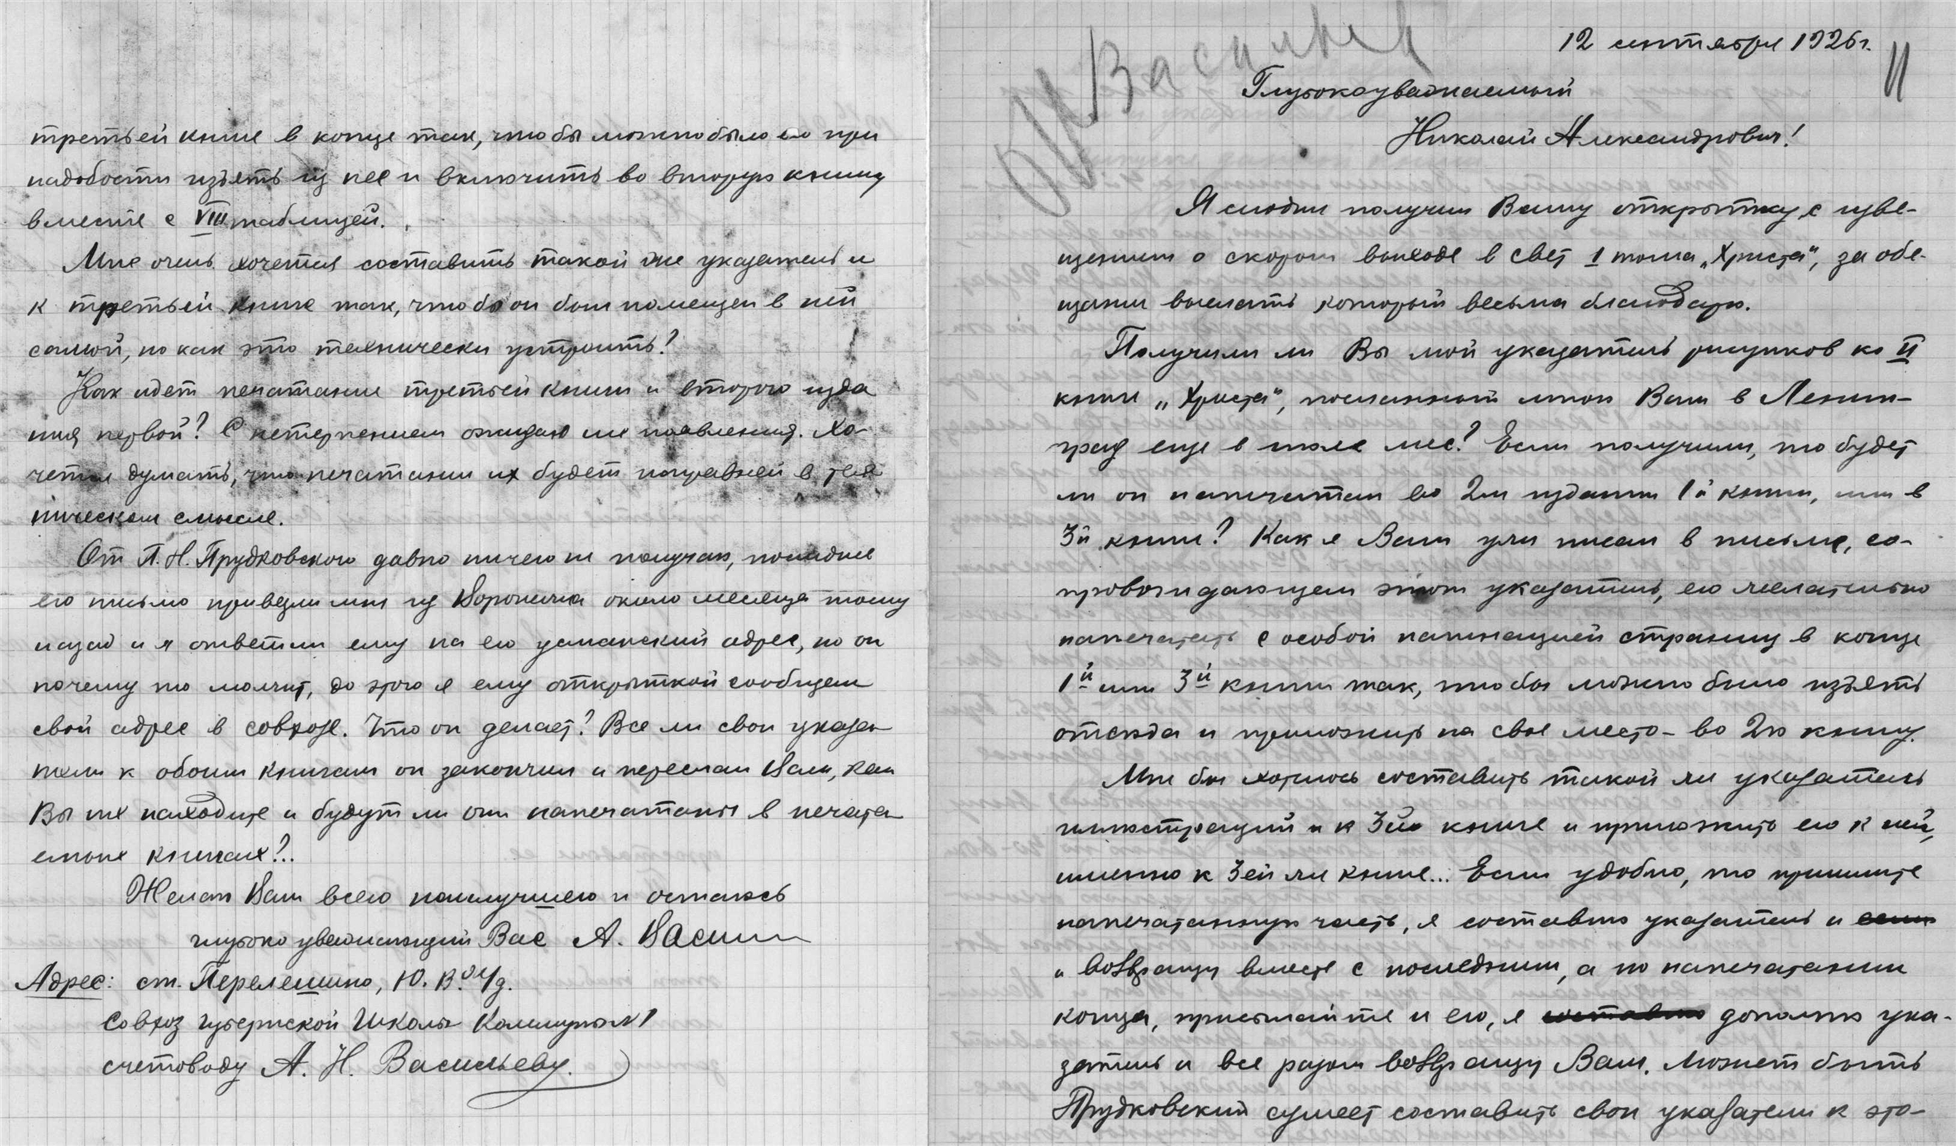 третьей книге в конце так, чтобы можно было его при
надобности изъять из нее и включить во вторую книгу
вместе с VIII таблицей.
Мне очень хочется составить такой же указатель и
к третьей книге так, чтобы он был помещен в ней
самой, но как это технически устроить?
Как идет печатание третьей книги и второго изда
ния первой? С нетерпением ожидаю их появления. Хо-
четься думать, что печатание их будет исправней в тех
ническом смысле.
От П. Н. Прудковского давно ничего не получаю, последнее
его письмо привезли мне из Воронежа около месяца тому
назад и я ответил ему на его усманский адрес, но он
почему то молчит, до этого я ему открыткой сообщал
свой адрес в совхозе. Что он делает? Все ли свои указа
тели к обоим книгам он закончил и переслал Вам, как
Вы их находите и будут ли они напечатаны в печата
емых книгах?..
Желаю Вам всего наилучшего и остаюсь
глубоко уважающий Вас А. Васил
Адрес: ст. Перелешино, Ю. В. ж/д.
Совхоз губернской Школы Коммуны №1
счетоводу А. Н. Васильеву.
Васильев
12 сентября 1926 г.
11
Глубокоуважаемый
Николай Александрович!
Я сегодня получил Вашу открытку с изве-
щением о скором выходе в свет I тома „Христа“, за обе-
щание выслать который весьма благодарю.
Получили ли Вы мой указатель рисунков ко II
книге „Христа“, посланный мной Вам в Ленин-
град еще в июле мес? Если получили, то будет
ли он напечатан во 2м издании 1й книги, или в
3й книге? Как я Вам уже писал в письме, со-
провождающем этот указатель, его желательно
напечатать с особой пагинацией страниц в конце
1й или 3й книги так, чтобы можно было изъять
отсюда и приложить на свое место – во 2ю книгу.
Мне бы хотелось составить такой же указатель
иллюстраций и к 3й книге и приложить его к ней,
именно к 3ей же книге... Если удобно, то пришлите
напечатанную часть, я составлю указатель и
и возвращу вместе с последним, а по напечатании
конца, присылайте и его, я дополню ука-
затель и все разом возвращу Вам. Может быть
Прудковский сумеет составить свои указатели к это-